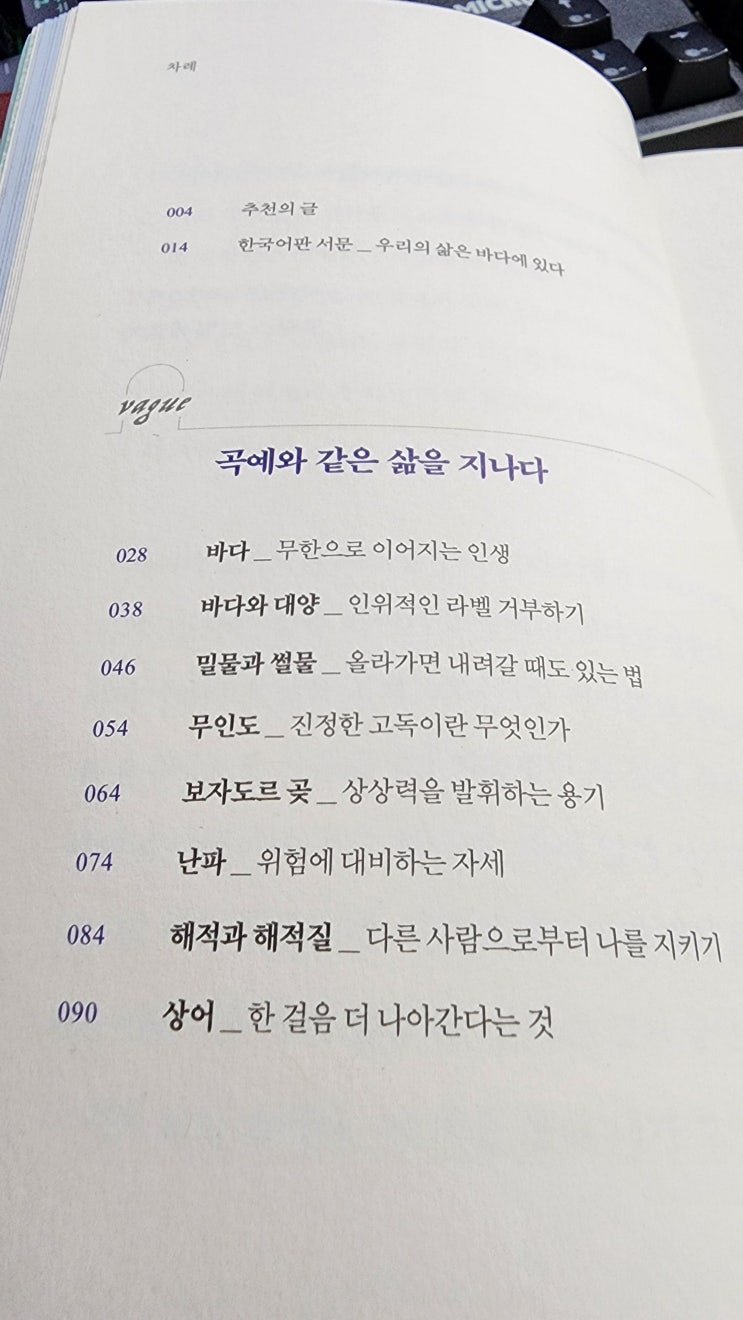 차례
004 추천의 글
014 한국어판 서문 _ 우리의 삶은 바다에 있다
vague
곡예와 같은 삶을 지나다
028 바다 _ 무한으로 이어지는 인생
038 바다와 대양 _ 인위적인 라벨 거부하기
046 밀물과 썰물 _ 올라가면 내려갈 때도 있는 법
054 무인도 _ 진정한 고독이란 무엇인가
064 보자도르 곶 _ 상상력을 발휘하는 용기
074 난파 _ 위험에 대비하는 자세
084 해적과 해적질 _ 다른 사람으로부터 나를 지키기
090 상어 _ 한 걸음 더 나아간다는 것